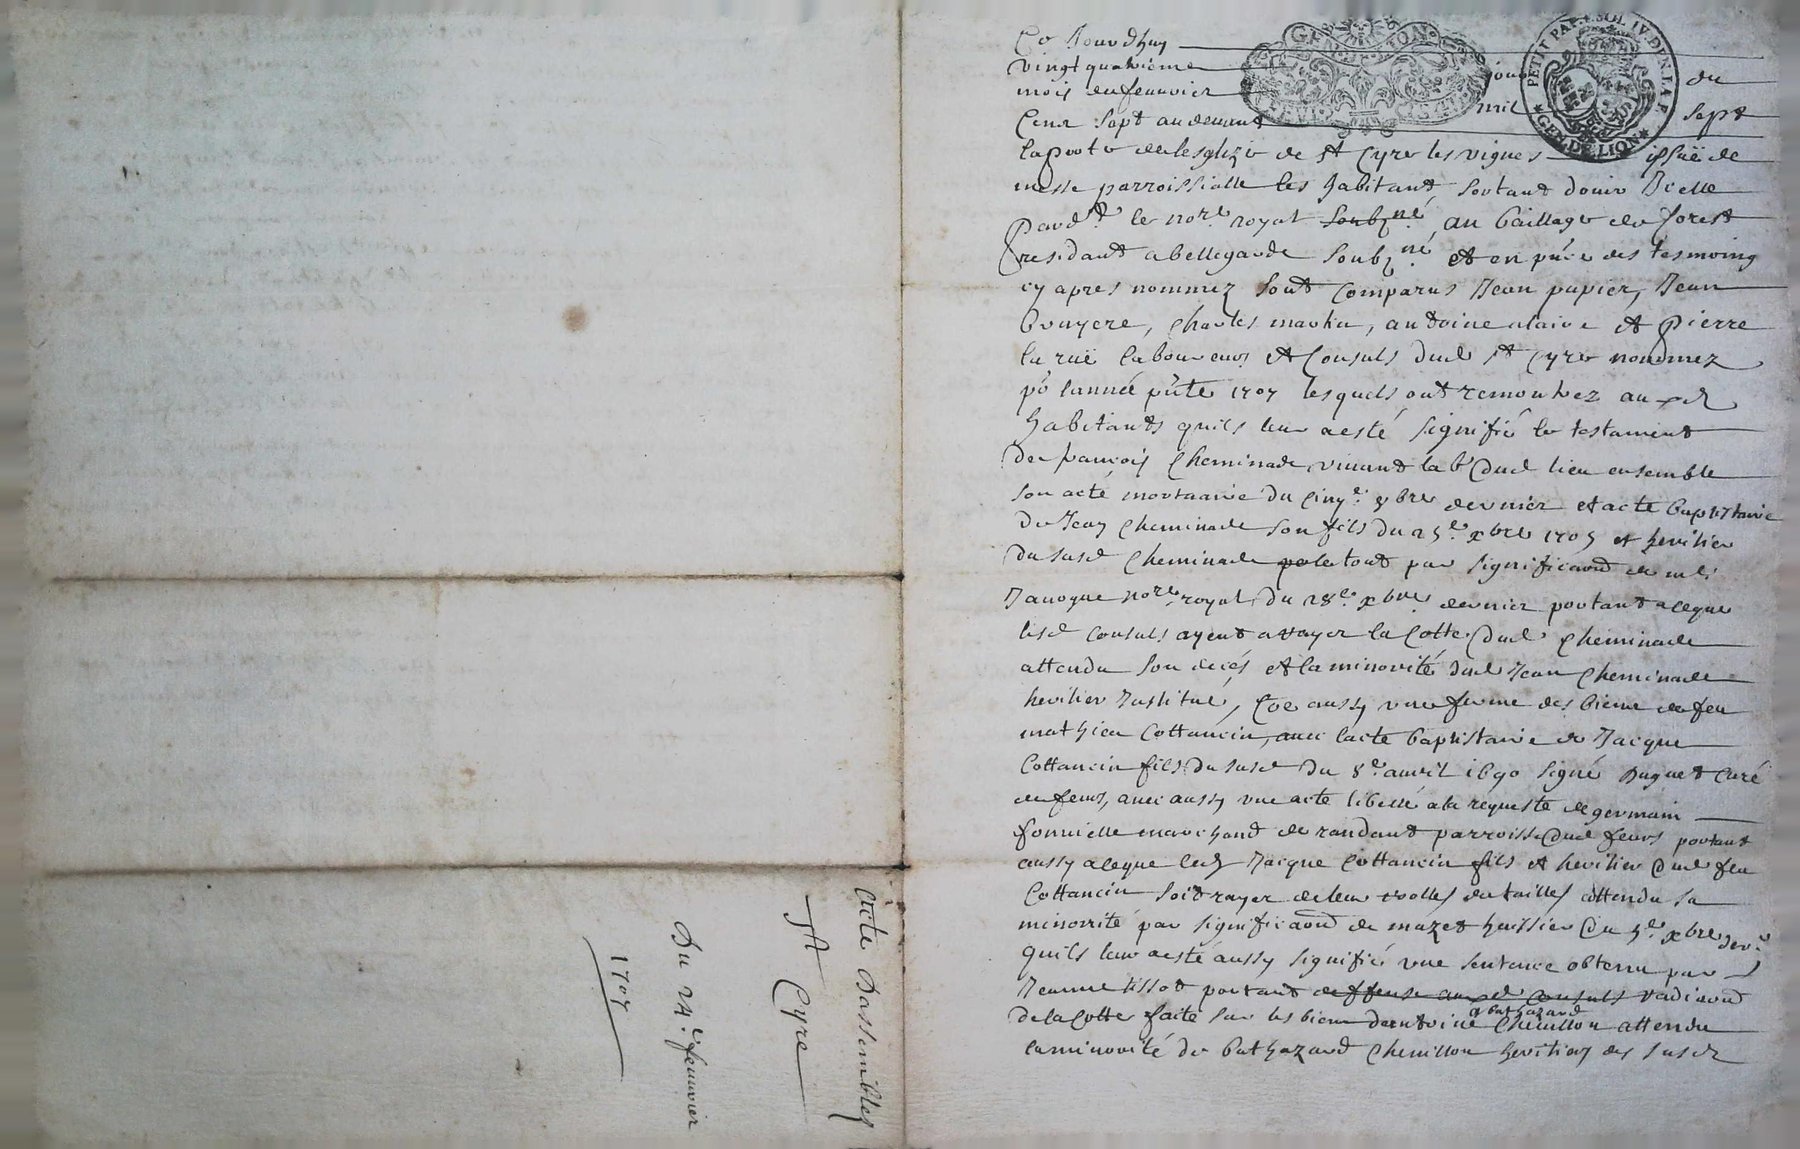 Ce Jourdhuy
vingt quatrieme jour du
mois de feuvrier mil sept
Cens sept au deuant
la porte de lesglize de St Cyre les vignes issuë de
messe parroissialle les habitans sortant douir Icelle
Pard.t le nore. royal soubz.né au baillage de forest
residant a bellegarde soubz.né et en pñce des tesmoing
cy apres nommez sont Comparus Jean papier, Jean
bruyere, Charles martin, antoine alaire et pierre
la ruë laboureurs et Consuls dud St Cyre nommez
po lannée pñte 1707 lesquels ont remontrez auxd
habitants quils leur a esté signifié le testament
de francois Cheminade viuant lab dud lieu ensemble
son acte mortuaire du Cinq.e 8bre dernier et acte baptistaire
de Jean Cheminade son fils du 25.e xbre 1705 et heritier
du susd Cheminade le tout par significaon de me
Janoque nore. royal du 28.e xbre dernier portant a ceque
lesd consuls ayent a rayer la Cotte dud Cheminade
attendu son deces et la minorité dud Jean Cheminade
heritier Institué, Coe aussy une ferme des biens de feu
mathieu Cottancin, auec lacte baptistaire de Jacque
Cottancin fils du susd du 8.e auril 1690 signé Duguet Curé
de feurs, auec aussy une acte libellé a la requeste de germain
fonuielle marchand de randant parroisse dud feurs portant
aussy a ceque led Jacque Cottancin fils et heritier dud feu
Cottancin soit rayer de leur rolles de tailles attendu sa
minorité par significaon de mazet huissier du 5.e xbre der.r
quils leur a esté aussy signifié une sentence obtenu par
Jeanne tissot portant deffense auxd consuls radiaon
de la Cotte faite sur les biens dantoine & bathazard Cheuillon attendu
la minorité de bathazard Cheuillon heritier des susd
Acte Dassemblée
St Cyre
Du 24.e feuurier
1707
GEN DE LION
PETIT PAP. 1 SOL IV. DEN. LA F.
GEN. DE LION